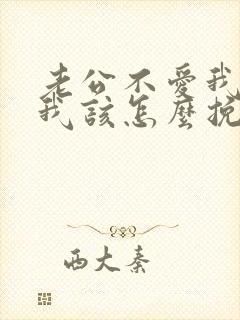 老公不愛我
我該怎麼挽
西大秦